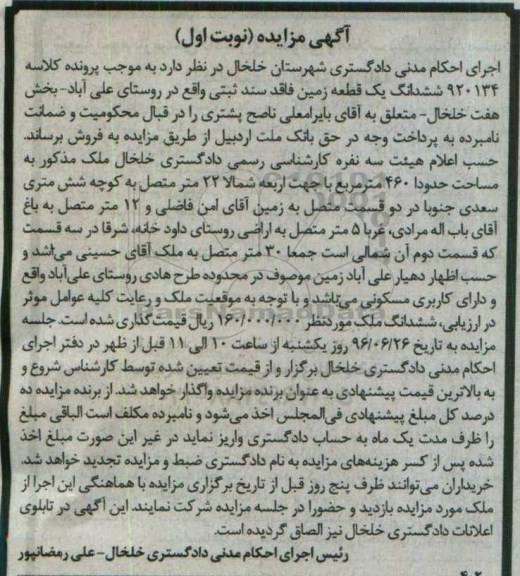 آگهی مزایده (نوبت اول)
اجرای احکام مدنی دادگستری شهرستان خلخال در نظر دارد به موجب پرونده کلاسه
۹۲۰۱۳۴ ششدانگ یک قطعه زمین فاقد سند ثبتی واقع در روستای علی آباد- بخش
هفت خلخال- متعلق به آقای بایرامعلی ناصح پشتری را در قبال محکومیت و ضمانت
نامبرده به پرداخت وجه در حق بانک ملت اردبیل از طریق مزایده به فروش برساند.
حسب اعلام هیئت سه نفره کارشناسی رسمی دادگستری خلخال ملک مذکور به
مساحت حدودا ۴۶۰ مترمربع با جهت اربعه شمالا ۲۲ متر متصل به کوچه شش متری
سعدی جنوبا در دو قسمت متصل به زمین آقای امن فاضلی و ۱۲ متر متصل به باغ
آقای باب اله مرادی، غربا ۵ متر متصل به اراضی روستای داود خانه، شرقا در سه قسمت
که قسمت دوم آن شمالی است جمعا ۳۰ متر متصل به ملک آقای حسینی می‌باشد و
حسب اظهار دهیار علی آباد زمین موصوف در محدوده طرح هادی روستای علی‌آباد واقع
و دارای کاربری مسکونی می‌باشد و با توجه به موقعیت ملک و رعایت کلیه عوامل موثر
در ارزیابی، ششدانگ ملک موردنظر ۱۶۰/۰۰۰/۰۰۰ ریال قیمت گذاری شده است. جلسه
مزایده به تاریخ ۹۶/۰۶/۲۶ روز یکشنبه از ساعت ۱۰ الی ۱۱ قبل از ظهر در دفتر اجرای
احکام مدنی دادگستری خلخال برگزار و از قیمت تعیین شده توسط کارشناس شروع و
به بالاترین قیمت پیشنهادی به عنوان برنده مزایده واگذار خواهد شد. از برنده مزایده ده
درصد کل مبلغ پیشنهادی فی‌المجلس اخذ می‌شود و نامبرده مکلف است الباقی مبلغ
را ظرف مدت یک ماه به حساب دادگستری واریز نماید در غیر این صورت مبلغ اخذ
شده پس از کسر هزینه‌های مزایده به نام دادگستری ضبط و مزایده تجدید خواهد شد.
خریداران می‌توانند ظرف پنج روز قبل از تاریخ برگزاری مزایده با هماهنگی این اجرا از
ملک مورد مزایده بازدید و حضورا در جلسه مزایده شرکت نمایند. این آگهی در تابلوی
اعلانات دادگستری خلخال نیز الصاق گردیده است.
رئیس اجرای احکام مدنی دادگستری خلخال- علی رمضانپور